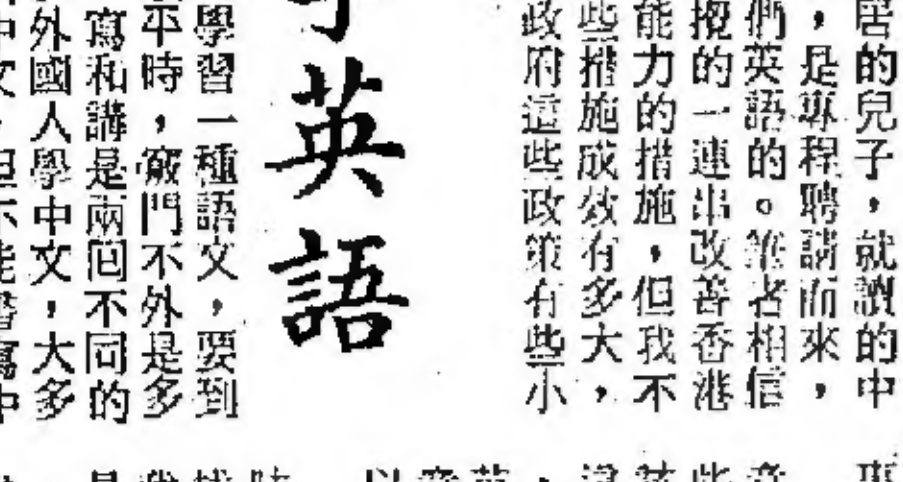 的兒子，就讀的中
，是專程聘請而來，
們英語的。筆者相信
攪的一連串改善香港
能力的措施，但我不
些措施成效有多大，
政府這些政策有些小
英語
學習一種語文，要到
平時，竅門不外是多
寫和講是兩回不同的
外國人學中文，大多